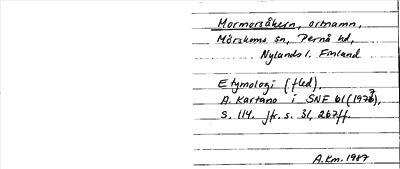 Mormorsåkern, ortnamn,
Mörskoms sn, Pernå hd,
Nylands l. Finland
Etymologi (fled),
A. Kartano i SNF 61 (1973),
s. 114. Jfr. s. 31, 267ff.
A.Km. 1987